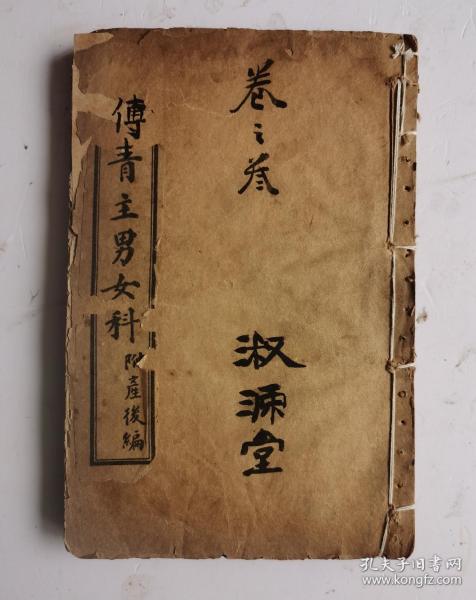 卷之叁
淑源堂
傅青主男女科
附產後編
孔夫子旧书网
www.kongfz.com